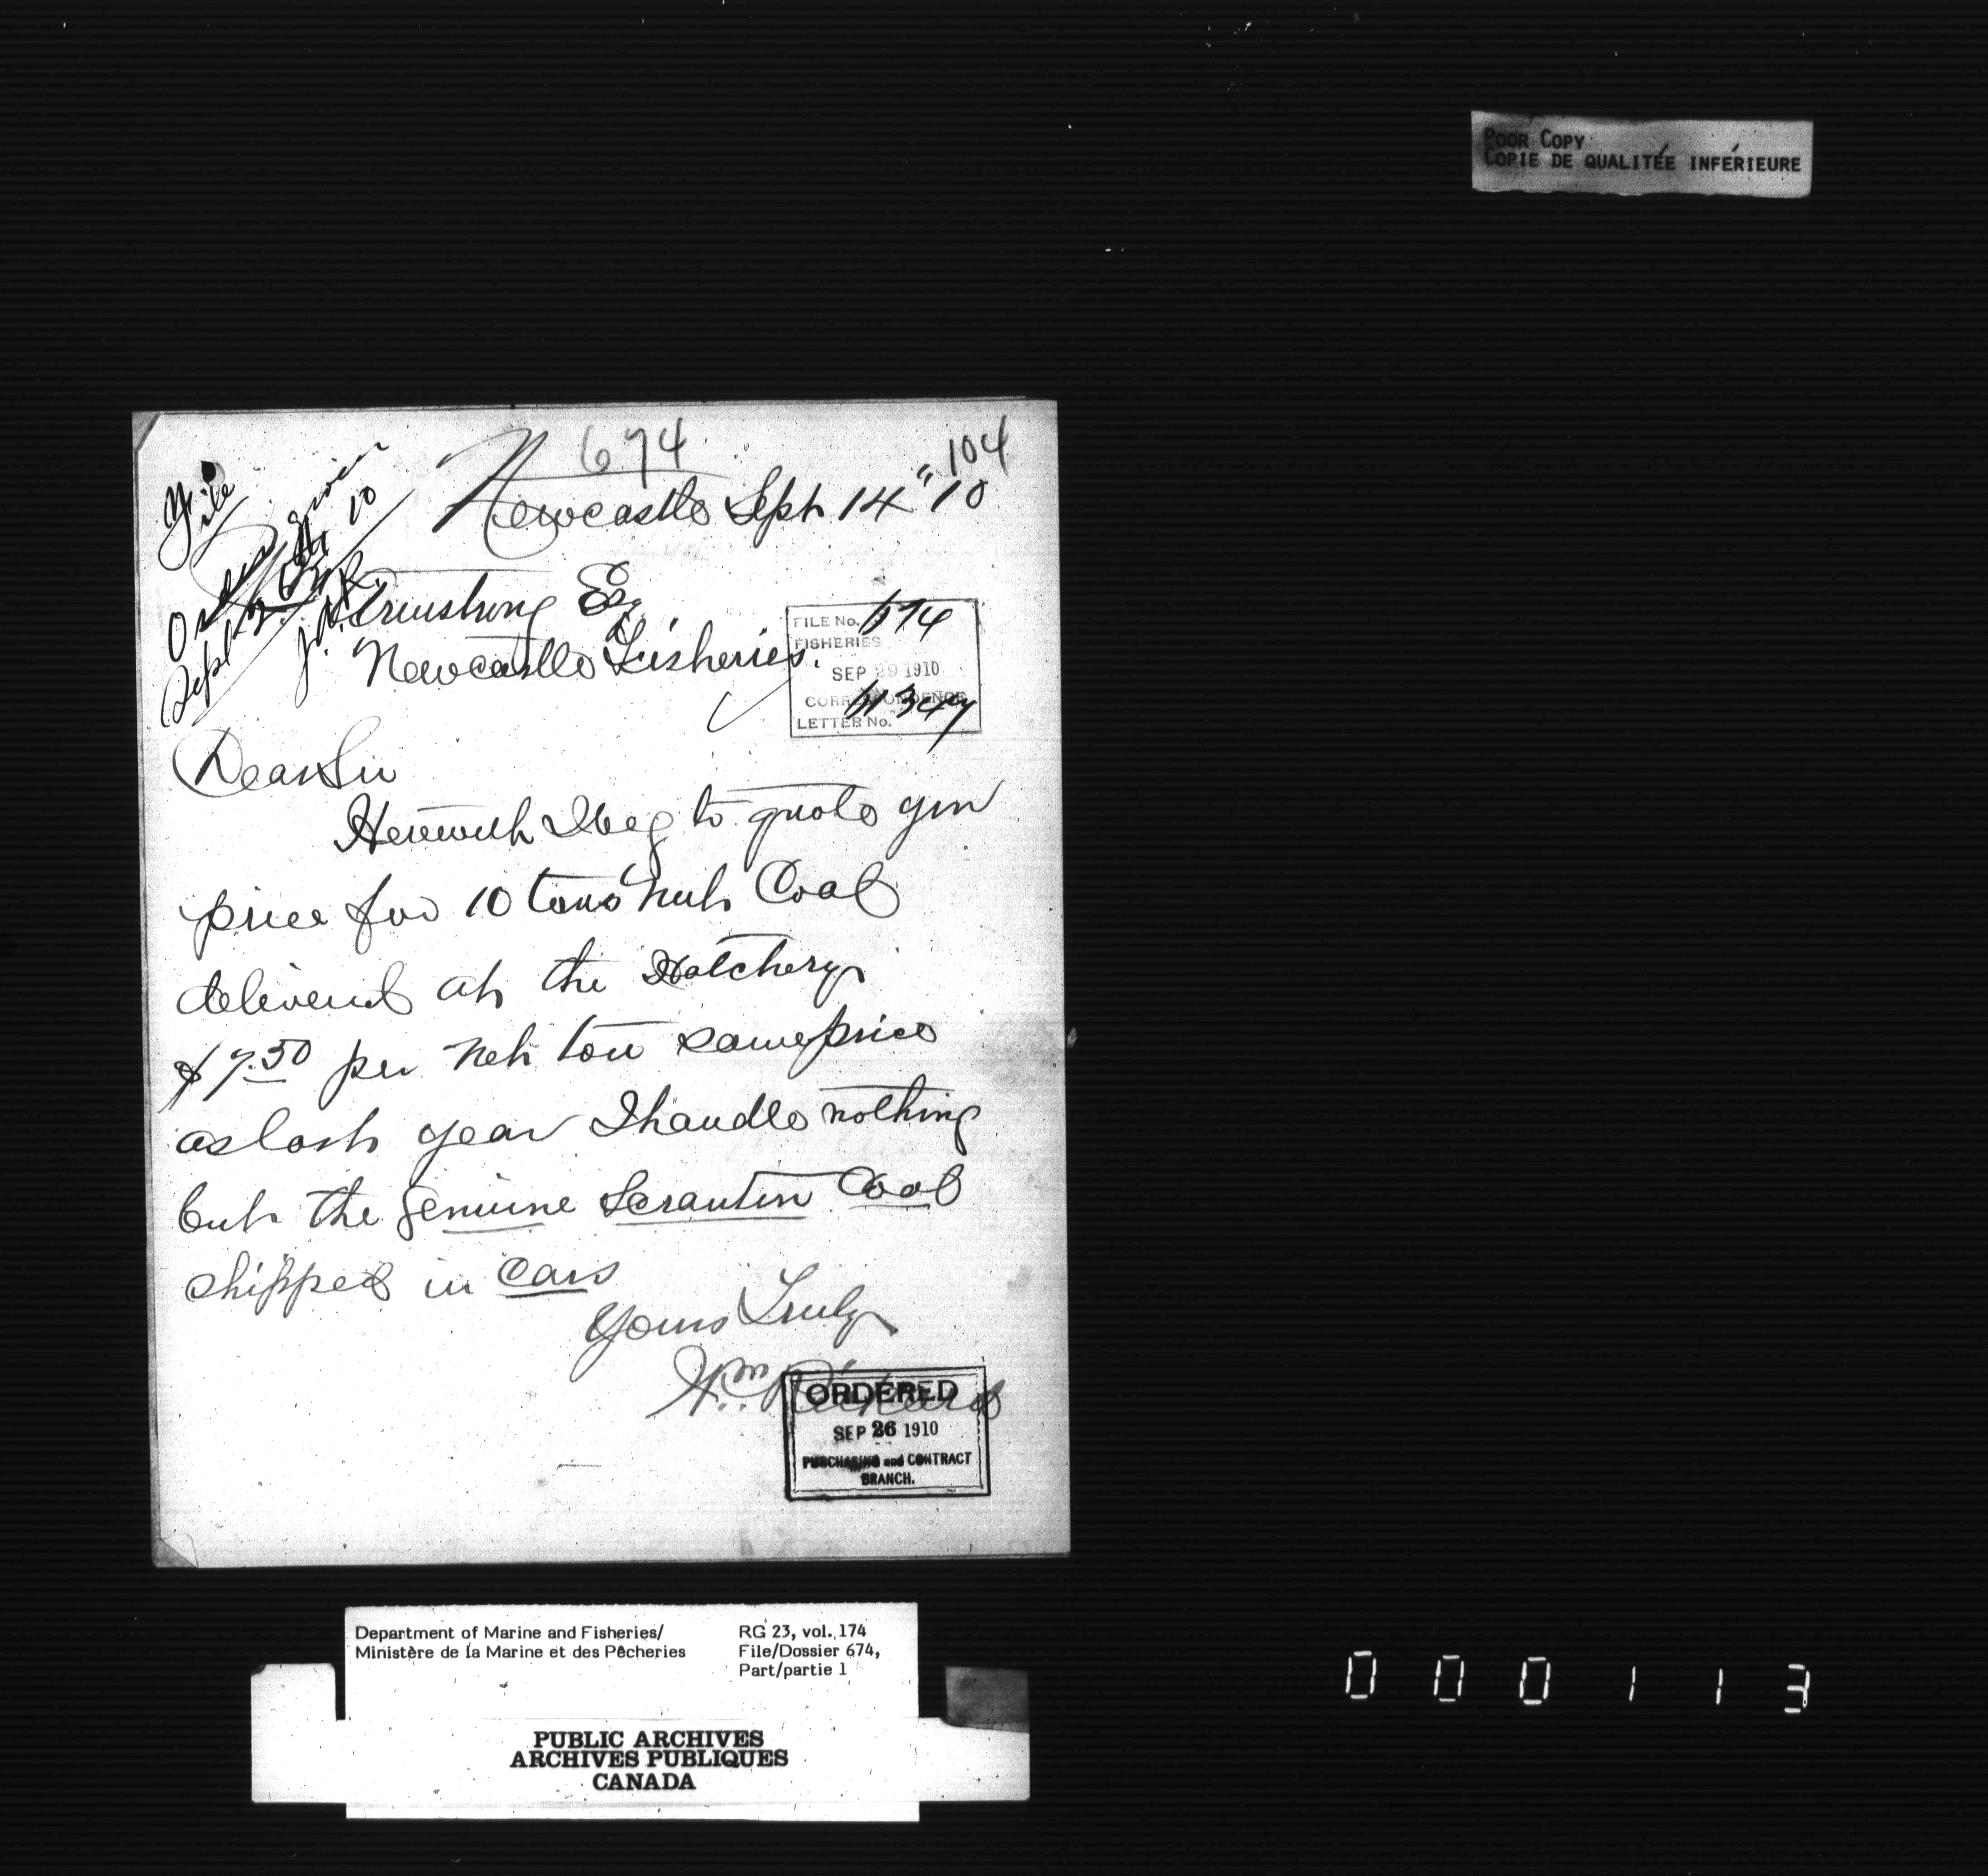 POOR COPY
COPIE DE QUALITÉE INFÉRIEURE
674
104
Newcastle Sept 14" 10
File
Order given
Sept 26th 10
Armstrong Esq
Newcastle Fisheries.
FILE No. 674
FISHERIES
SEP 29 1910
CORRESPONDENCE
LETTER No.
Dear Sir
Herewith I beg to quote you
price for 10 tons Nut Coal
delivered at the Hatchery
$7.50 per net ton same price
as last year I handle nothing
but the genuine Scranton Coal
shipped in cars
Yours Truly
Wm
ORDERED
SEP 26 1910
PURCHASING and CONTRACT
BRANCH.
Department of Marine and Fisheries/
Ministère de la Marine et des Pêcheries
RG 23, vol. 174
File/Dossier 674,
Part/partie 1
PUBLIC ARCHIVES
ARCHIVES PUBLIQUES
CANADA
000113